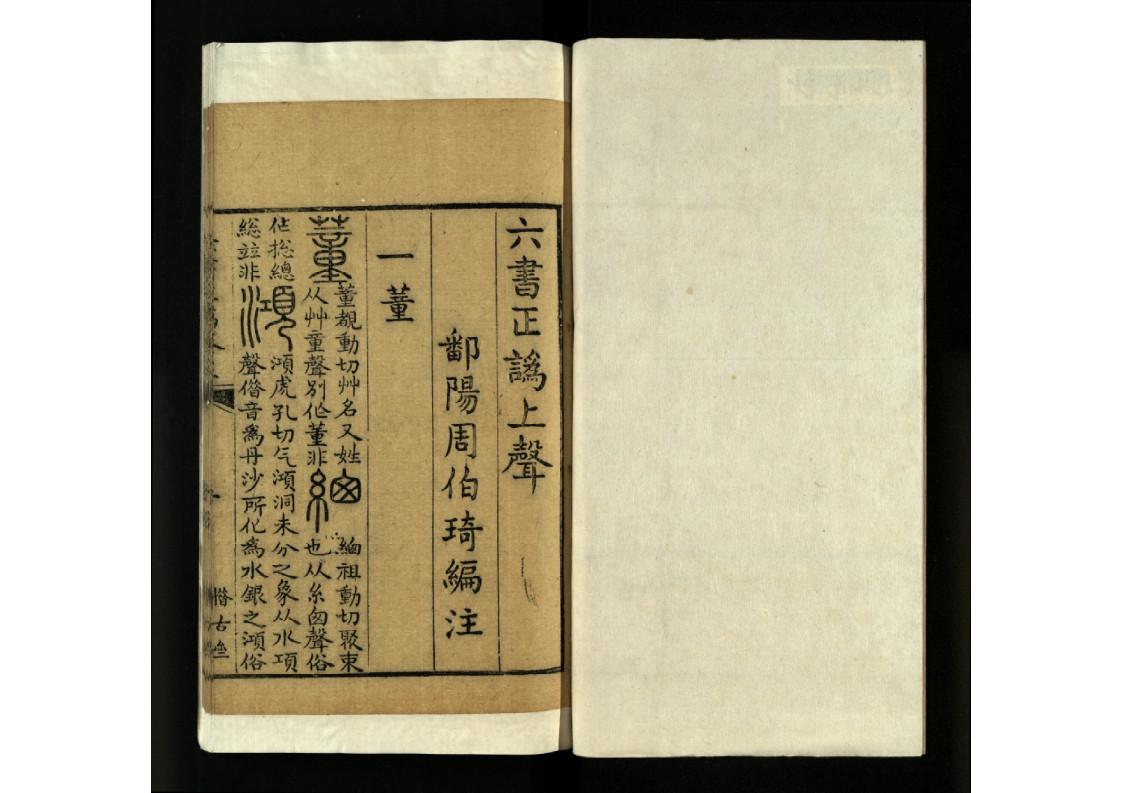 六書正譌上聲
鄱陽周伯琦編注
一董
蕫
董覩動切艸名又姓
从艸童聲別作董非
緫
緫祖動切聚束
也从糸囪聲俗
作捴總
総竝非
澒
澒虎孔切气澒洞未分之象从水項
聲偺音爲丹沙所化爲水銀之澒俗